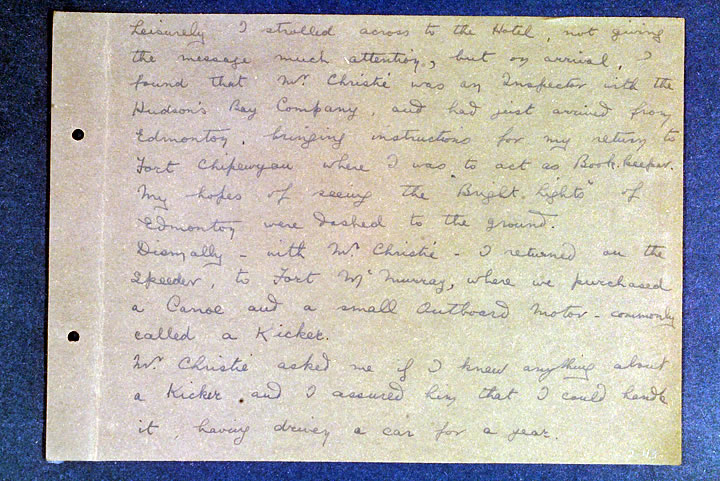 Leisurely I strolled across to the Hotel, not giving
the message much attention, but on arrival, I
found that Mr. Christie was an Inspector with the
Hudson's Bay Company, and had just arrived from
Edmonton, bringing instructions for my return to
Fort Chipewyan where I was to act as Book-keeper.
My hopes of seeing the "Bright-Lights" of
Edmonton were dashed to the ground.
Dismally - with Mr. Christie - I returned on the
Speeder, to Fort McMurray, where we purchased
a Canoe and a small Outboard Motor - commonly
called a Kicker.
Mr. Christie asked me if I knew anything about
a Kicker and I assured him that I could handle
it, having driven a car for a year.